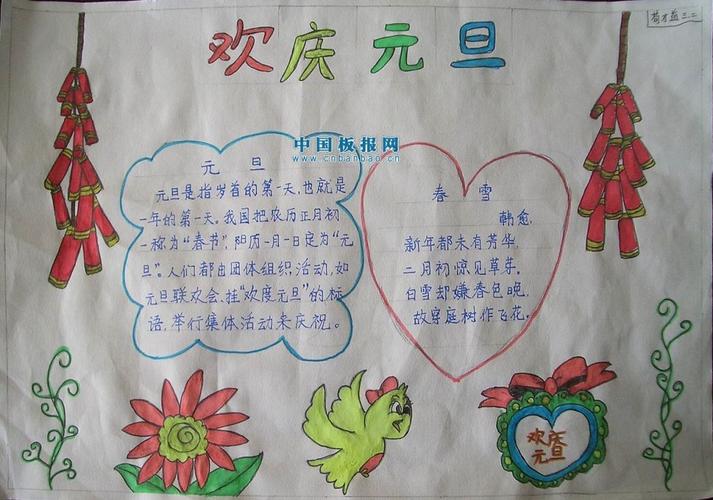 欢庆元旦
中国板报网
www.cnbanbao.cn
元旦
元旦是指岁首的第一天,也就是
一年的第一天。我国把农历正月初
一称为“春节”,阳历一月一日定为“元
旦”。人们都由团体组织活动,如
元旦联欢会、挂“欢度元旦”的标
语,举行集体活动来庆祝。
春雪
韩愈
新年都未有芳华,
二月初惊见草芽。
白雪却嫌春色晚,
故穿庭树作飞花。
欢庆
元旦